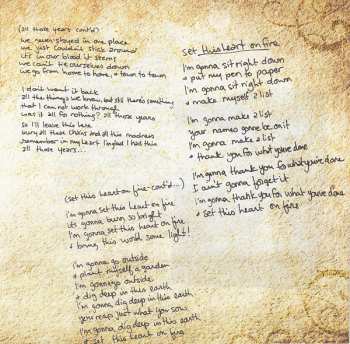 (all those years cont'd)
we never stayed in one place
we just couldn't stick around
it's in our blood it seems
we can't tie ourselves down
we go from home to home, + town to town
I don't want it back
all the things we knew, but still there's something
that I can not work through
was it all for nothing? all those years
so I'll leave this here
bury all these chains and all this madness
remember in my heart I'm glad I had this
all those years...
set this heart on fire
I'm gonna sit right down
+ put my pen to paper
I'm gonna sit right down
+ make myself a list
I'm gonna make a list
your names gonna be on it
I'm gonna make a list
+ thank you for what you've done
I'm gonna thank you for what you've done
I ain't gonna forget it
I'm gonna thank you for what you've done
+ set this heart on fire
(set this heart on fire - cont'd...)
I'm gonna set this heart on fire
it's gonna burn so bright
I'm gonna set this heart on fire
+ bring this world some light!
I'm gonna go outside
+ plant myself a garden
I'm gonna go outside
+ dig deep in this earth
I'm gonna dig deep in this earth
you reap just what you sow
I'm gonna dig deep in this earth
+ set this heart on fire